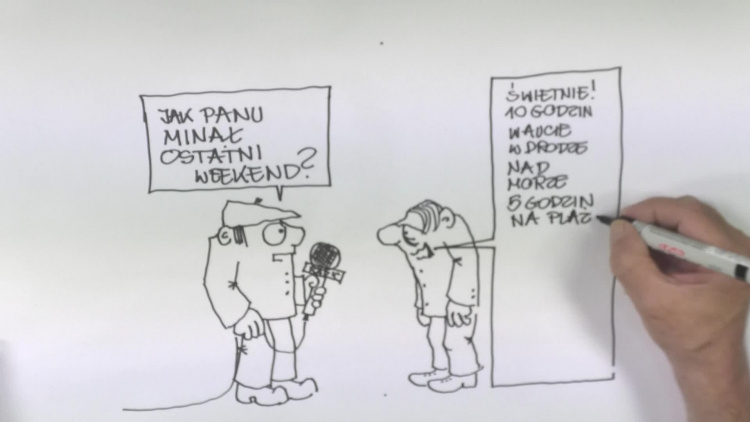 JAK PANU
MINĄŁ
OSTATNI
WEEKEND?
ŚWIETNIE!
10 GODZIN
W AUCIE
W DRODZE
NAD
MORZE
5 GODZIN
NA PLAŻ